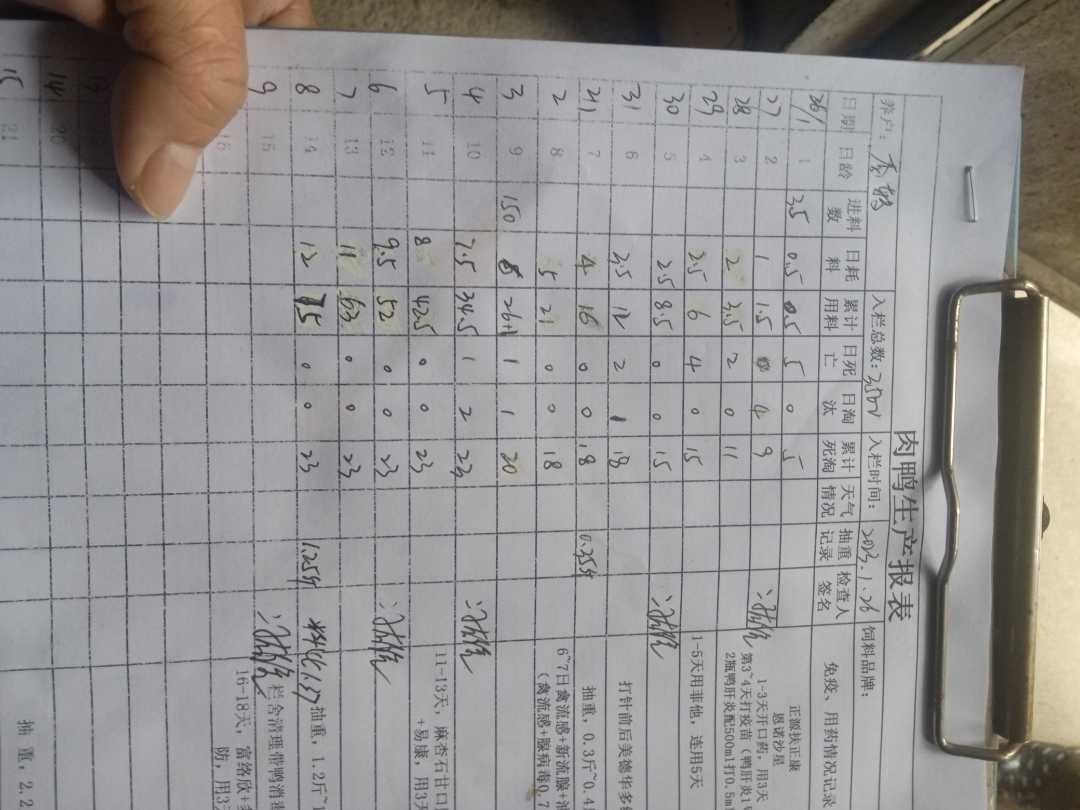 肉鸭生产报表
养户: 入栏总数: 3500 入栏时间: 2023.1.26 饲料品牌:
日期 日龄 进料数 日耗料 累计用料 日死亡 日淘汰 累计死淘 天气情况 抽重记录 检查人签名 免疫、用药情况记录
26/1 1 35 0.5 0.5 5 0 5 正源扶正康
恩诺沙星
27 2 1 1.5 4 9 1-3天开口药,用3天
28 3 2 3.5 2 0 11 第3~4天打疫苗(鸭肝炎1
2瓶鸭肝炎配500ml打0.5m
29 4 2.5 6 4 0 15 1-5天用菲他,连用5天
30 5 2.5 8.5 0 0 15
31 6 3.5 12 2 1 18 打针前后美德华多
2/1 7 4 16 0 0 18 0.35斤 抽重,0.3斤~0.4
2 8 5 21 0 0 18 6~7日禽流感+新流腺+
(禽流感+腺病毒0.7
3 9 150 26 1 1 20
4 10 7.5 34.5 1 2 23
5 11 8 42.5 0 0 23 11-13天,麻杏石甘口
+易康,用3天
6 12 9.5 52 0 0 23
7 13 11 63 0 0 23
8 14 12 75 0 0 23 1.25斤 料比1.27 抽重,1.2斤~1
9 15 栏舍清理带鸭消
16 16-18天,富络欣+
防,用3
14 20
15 21 抽重,2.2